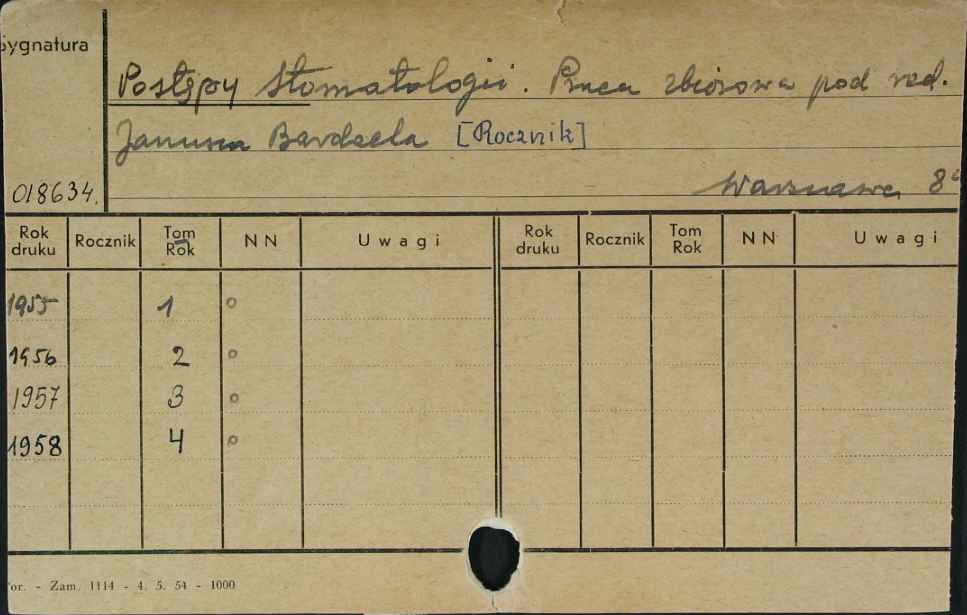 Sygnatura
Postępy Stomatologii. Praca zbiorowa pod red.
Janusza Bardacha [Rocznik]
018634.
Warszawa, 8°
Rok druku Rocznik Tom Rok NN Uwagi Rok druku Rocznik Tom Rok NN Uwagi
1955 1 o
1956 2 o
1957 3 o
1958 4 o
or. - Zam. 1114 - 4. 5. 54 - 1000